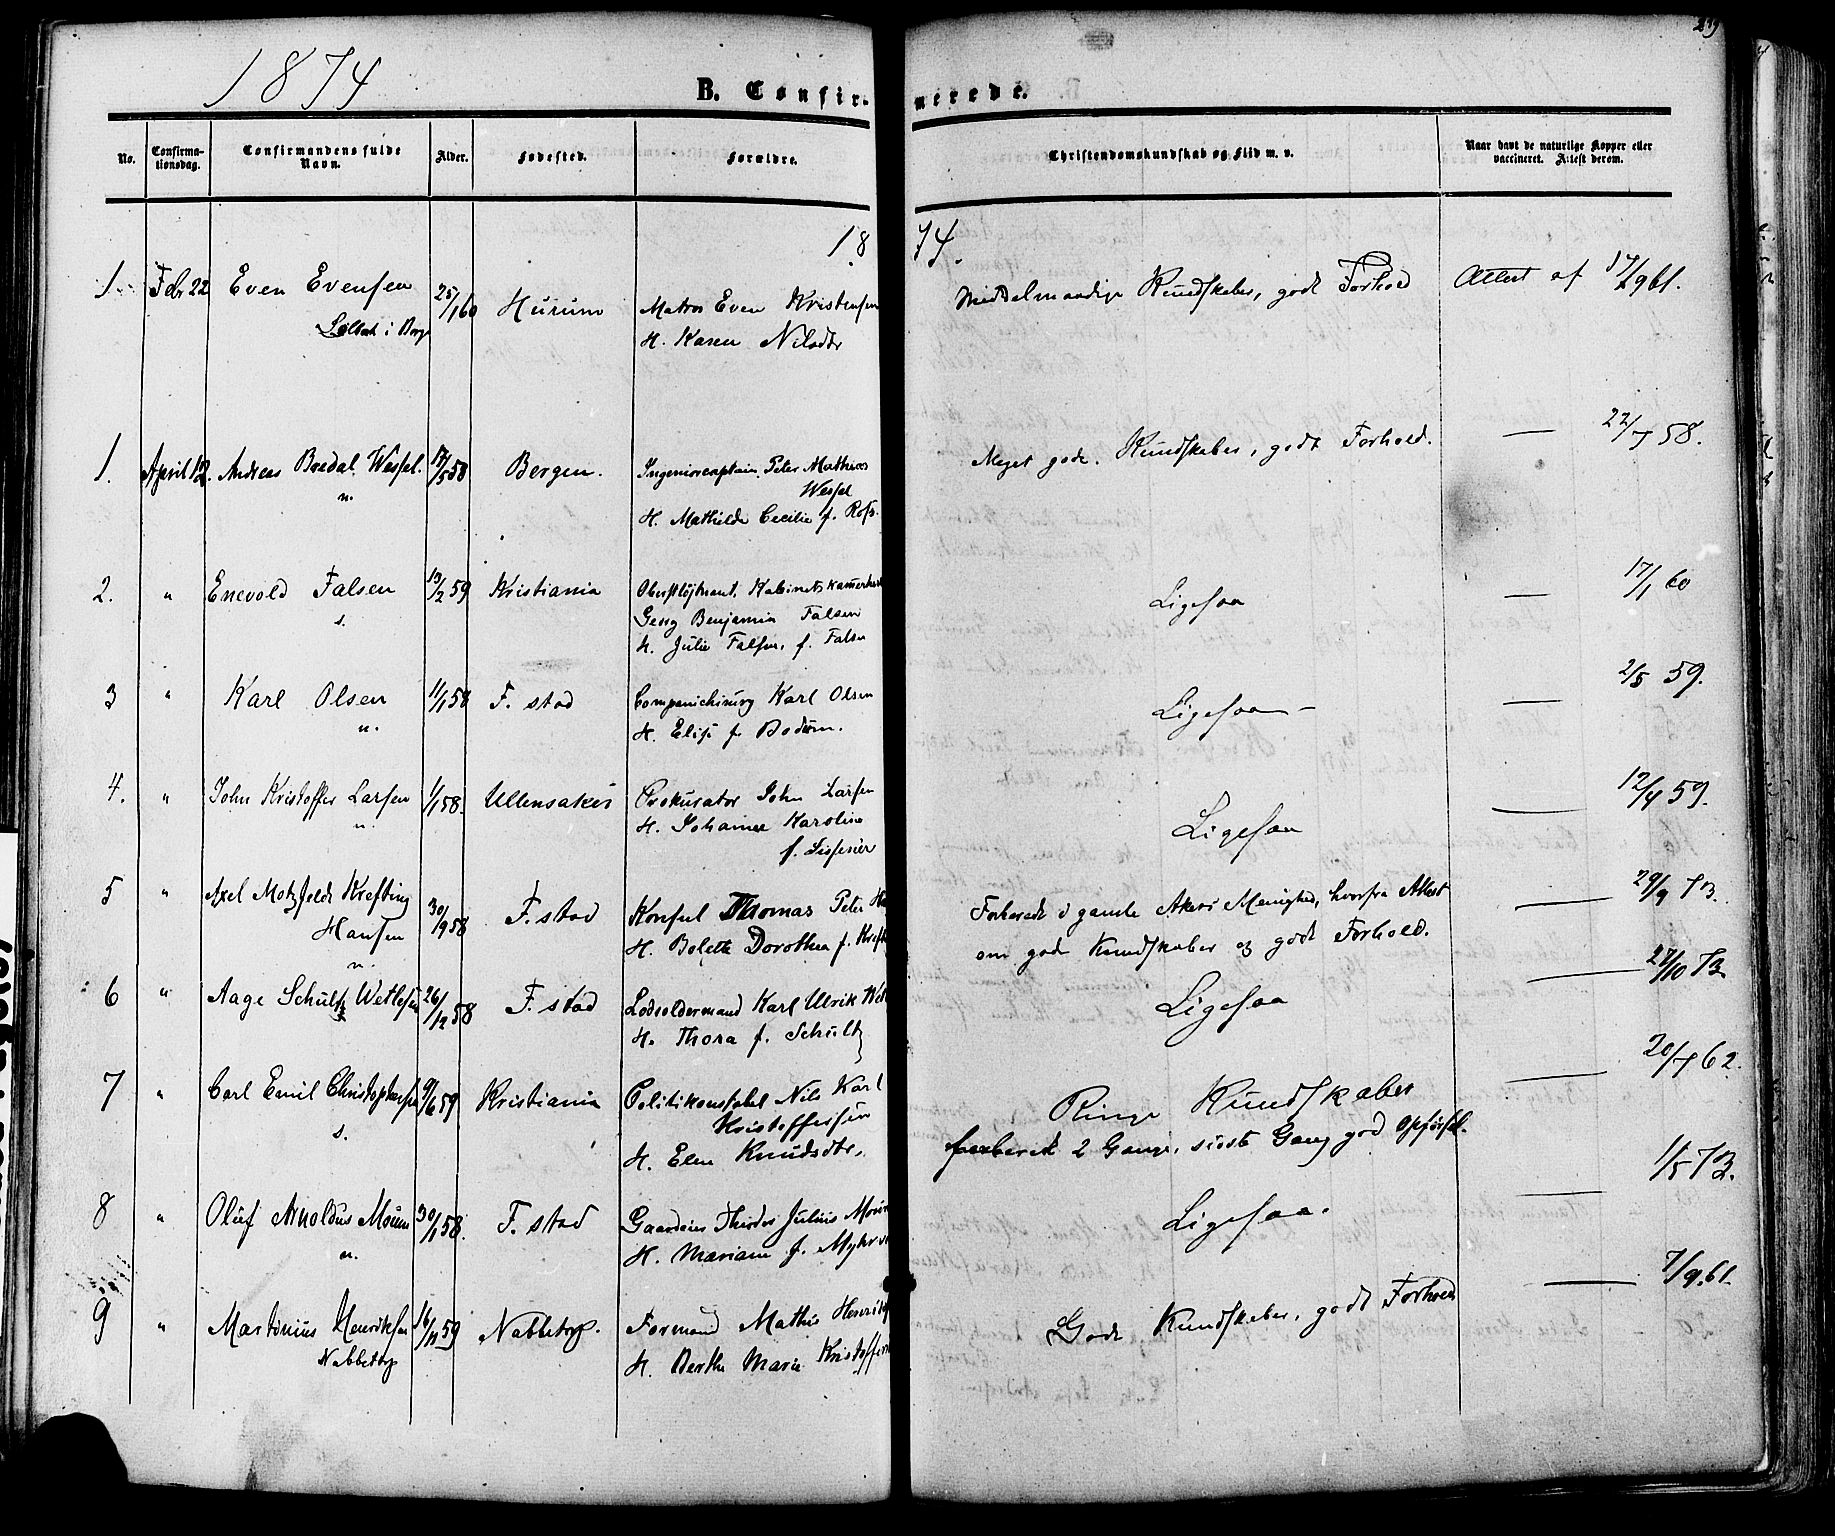 1874
B. Confir-
merede.
No.
Confirma-
tionsdag.
Confirmandens fulde
Navn.
Alder.
Fødested.
Forældre.
Christendomskundskab og Flid m. v.
Naar havt de naturlige Kopper eller
vaccineret. Attest derom.
18
74.
1. Febr 22 Even Evensen 25/1 60 Hurum Matros Even Kristensen Middelmaadige Kundskaber, godt Forhold Attest af 17/9 61.
i Borge H. Karen Nilsdtr
1. April 12. Andreas Bredal Wessel. 17/5 58 Bergen. Ingenieurcaptain Peter Mathias Meget gode Kundskaber, godt Forhold. — 22/7 58.
n. Wessel
H. Mathilde Cecilie f. Ross.
2. " Enevold Falsen 13/2 59 Kristiania Oberstløjtnant, Kabinetskammerherre Ligesaa — 17/1 60
s. Georg Benjamin Falsen
H. Julie Falsen, f. Falsen
3 " Karl Olsen 11/1 58 F. stad Companichirurg Karl Olsen Ligesaa — 2/5 59.
n. H. Elise f. Bodom.
4. " John Kristoffer Larsen 1/1 58. Ullensaker Prokurator John Larsen Ligesaa — 12/4 59.
n. H. Johanne Karoline
f.
5 " Axel Motzfeldt Krefting 30/9 58 F. stad Konsul Thomas Peter Forberedt i gamle Akers Menighed, hvorfra Attest — 29/9 73.
Hansen H. Bolette Dorothea f. Kreft om gode Kundskaber og godt Forhold.
n.
6 " Aage Schultz Wetlesen 26/12 58 F. stad Lodsoldermand Karl Ulrik Wet Ligesaa — 27/10 73
H. Thora f. Schultz
7 " Carl Emil Christophersen 9/6 59 Kristiania Politikonstabel Nils Karl Ringe Kundskaber — 20/7 62.
s. Kristoffersen forberedt 2 Gange, sidste Gang god Opførsel.
H. Elen Knudsdtr.
8 " Oluf Arnoldus Moum 30/1 58. F. stad Julius Moum Ligesaa. — 1/5 73.
n. H. Mariane f. Myhrv
9 " Martinius Henriksen 16/11 59 Nabbetorp. Formand Mathis Henriks Gode Kundskaber, godt Forhold — 7/9 61.
Nabbetorp H. Berthe Marie Kristoffers